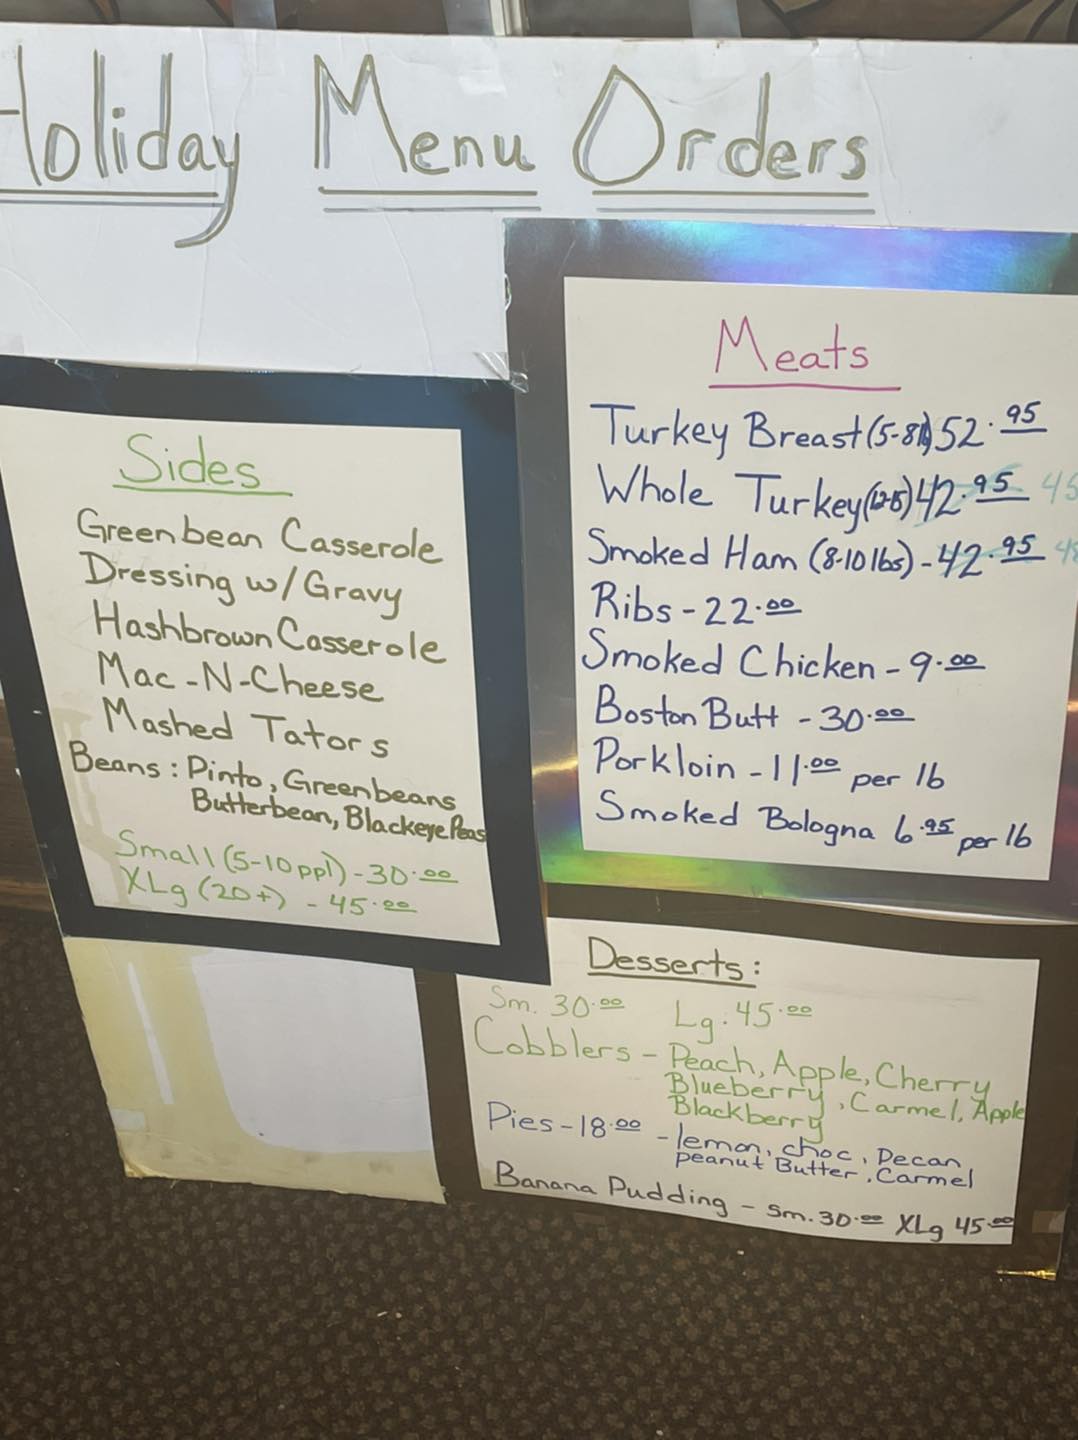 Holiday Menu Orders
Sides
Greenbean Casserole
Dressing w/Gravy
Hashbrown Casserole
Mac-N-Cheese
Mashed Tators
Beans: Pinto, Greenbeans
Butterbean, Blackeye Peas
Small (5-10 ppl) - 30.00
XLg (20+) - 45.00
Meats
Turkey Breast (5-8lb) 52.95
Whole Turkey (12-15) 42.95 45
Smoked Ham (8-10 lbs) - 42.95
Ribs - 22.00
Smoked Chicken - 9.00
Boston Butt - 30.00
Porkloin - 11.00 per lb
Smoked Bologna 6.95 per lb
Desserts:
Sm. 30.00 Lg. 45.00
Cobblers - Peach, Apple, Cherry
Blueberry, Carmel, Apple
Blackberry
Pies - 18.00 - lemon, choc, Pecan
peanut Butter, Carmel
Banana Pudding - Sm. 30.00 XLg 45.00